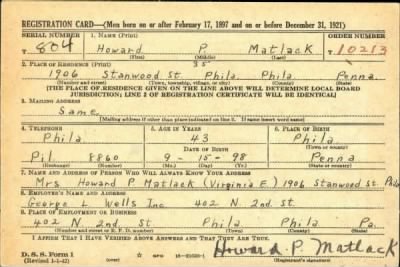 REGISTRATION CARD—(Men born on or after February 17, 1897 and on or before December 31, 1921)
SERIAL NUMBER 1. NAME (Print) ORDER NUMBER
T 804 Howard P. Matlack T 10213
(First) (Middle) (Last)
2. PLACE OF RESIDENCE (Print) 35
1906 Stanwood St. Phila. Phila. Penna.
(Number and street) (Town, township, village, or city) (County) (State)
[THE PLACE OF RESIDENCE GIVEN ON THE LINE ABOVE WILL DETERMINE LOCAL BOARD
JURISDICTION; LINE 2 OF REGISTRATION CERTIFICATE WILL BE IDENTICAL]
3. MAILING ADDRESS
Same
[Mailing address if other than place indicated on line 2. If same insert word same]
4. TELEPHONE 5. AGE IN YEARS 6. PLACE OF BIRTH
Phila 43 Phila
DATE OF BIRTH (Town or county)
Pil 8860 9-15-98 Penna
(Exchange) (Number) (Mo.) (Day) (Yr.) (State or country)
7. NAME AND ADDRESS OF PERSON WHO WILL ALWAYS KNOW YOUR ADDRESS
Mrs Howard P Matlack (Virginia E.) 1906 Stanwood St. Phila
8. EMPLOYER'S NAME AND ADDRESS
George L Wells Inc 402 N. 2nd St.
9. PLACE OF EMPLOYMENT OR BUSINESS
402 N 2nd. St Phila Phila Pa.
(Number and street or R. F. D. number) (Town) (County) (State)
I AFFIRM THAT I HAVE VERIFIED ABOVE ANSWERS AND THAT THEY ARE TRUE.
D. S. S. Form 1
(Revised 1-1-42) GPO 16-21630-1 (Registrant's signature)
Howard P. Matlack